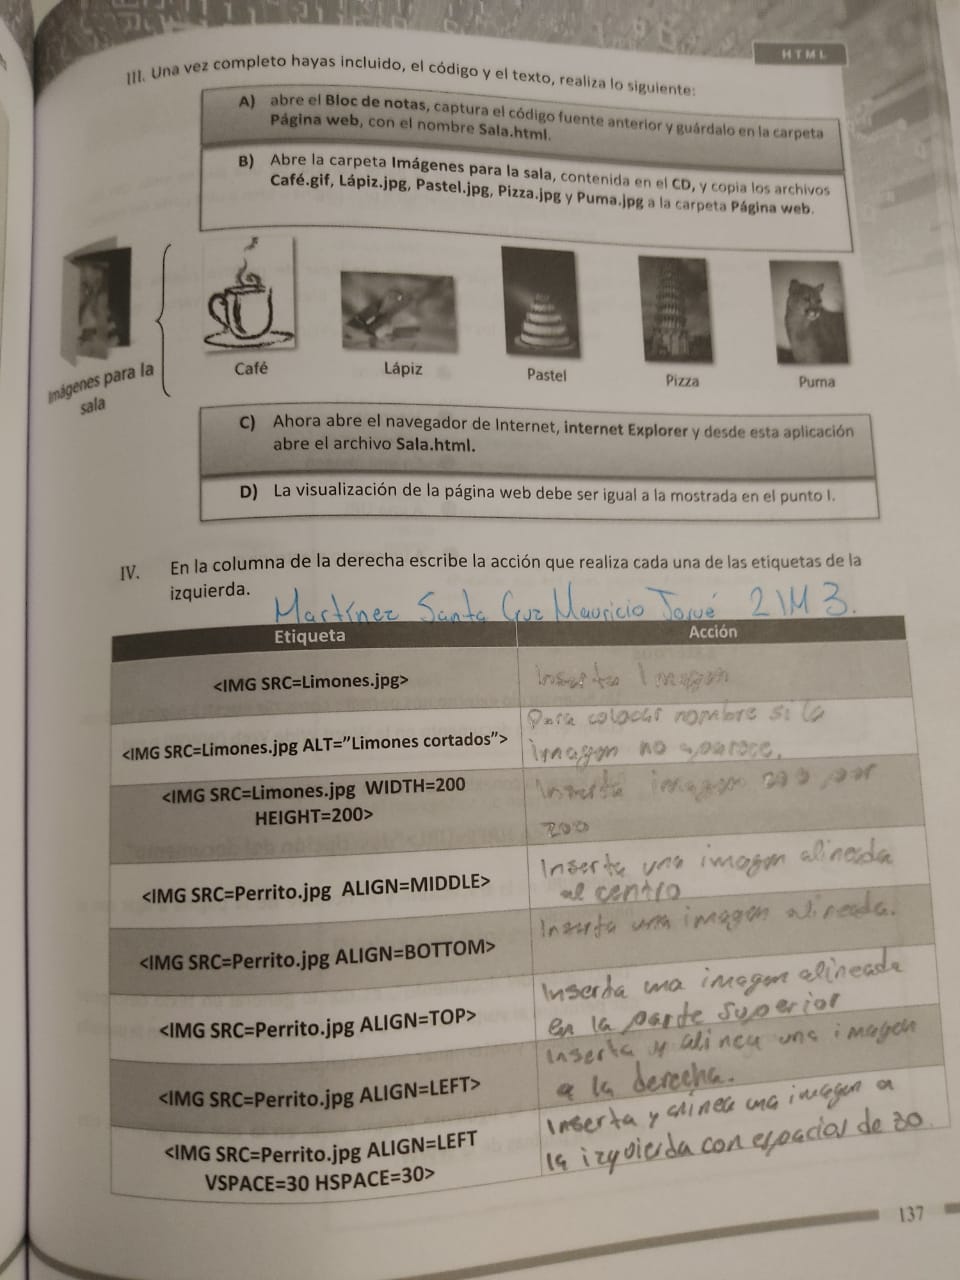 HTML
III. Una vez completo hayas incluido, el código y el texto, realiza lo siguiente:
A) abre el Bloc de notas, captura el código fuente anterior y guárdalo en la carpeta
Página web, con el nombre Sala.html.
B) Abre la carpeta Imágenes para la sala, contenida en el CD, y copia los archivos
Café.gif, Lápiz.jpg, Pastel.jpg, Pizza.jpg y Puma.jpg a la carpeta Página web.
Imágenes para la
sala
Café
Lápiz
Pastel
Pizza
Puma
C) Ahora abre el navegador de Internet, internet Explorer y desde esta aplicación
abre el archivo Sala.html.
D) La visualización de la página web debe ser igual a la mostrada en el punto I.
IV. En la columna de la derecha escribe la acción que realiza cada una de las etiquetas de la
izquierda.
Martínez Santa Cruz Mauricio Josué 2IM3.
Etiqueta Acción
<IMG SRC=Limones.jpg>
Inserta Imagen
<IMG SRC=Limones.jpg ALT="Limones cortados">
Para colocar nombre si la
imagen no aparece.
<IMG SRC=Limones.jpg WIDTH=200
HEIGHT=200>
Inserta imagen 200 por
200
<IMG SRC=Perrito.jpg ALIGN=MIDDLE>
Inserta una imagen alineada
al centro
<IMG SRC=Perrito.jpg ALIGN=BOTTOM>
Inserta una imagen alineada.
<IMG SRC=Perrito.jpg ALIGN=TOP>
Inserta una imagen alineada
en la parte superior
<IMG SRC=Perrito.jpg ALIGN=LEFT>
Inserta y alinea una imagen
a la derecha.
<IMG SRC=Perrito.jpg ALIGN=LEFT
VSPACE=30 HSPACE=30>
Inserta y alinea una imagen a
la izquierda con espacios de 30.
137